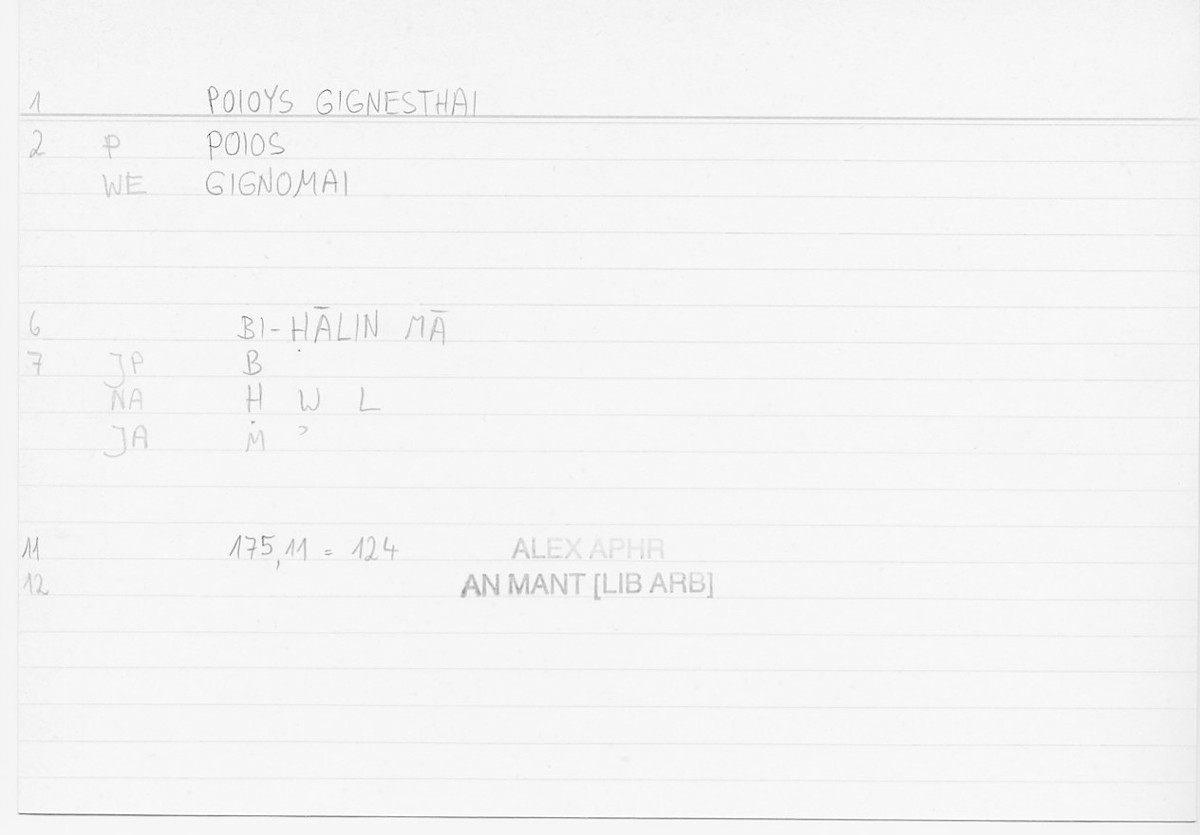 1 POIOYS GIGNESTHAI
2 P POIOS
WE GIGNOMAI
6 BI-ḤĀLIN MĀ
7 JP B
NA Ḥ W L
JA M ʾ
11 175,11 = 124 ALEX APHR
12 AN MANT [LIB ARB]